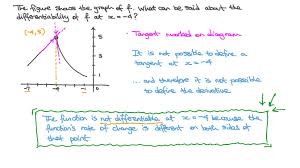 The figure shows the graph of f. What can be said about the
differentiability of f at x = -4?
(-4, 5)
• Tangent marked on diagram
It is not possible to define a
tangent at x = -4
... and therefore it is not possible
to define the derivative
5
3
1
-4
The function is not differentiable at x = -4 because the
function's rate of change is different on both sides of
that point